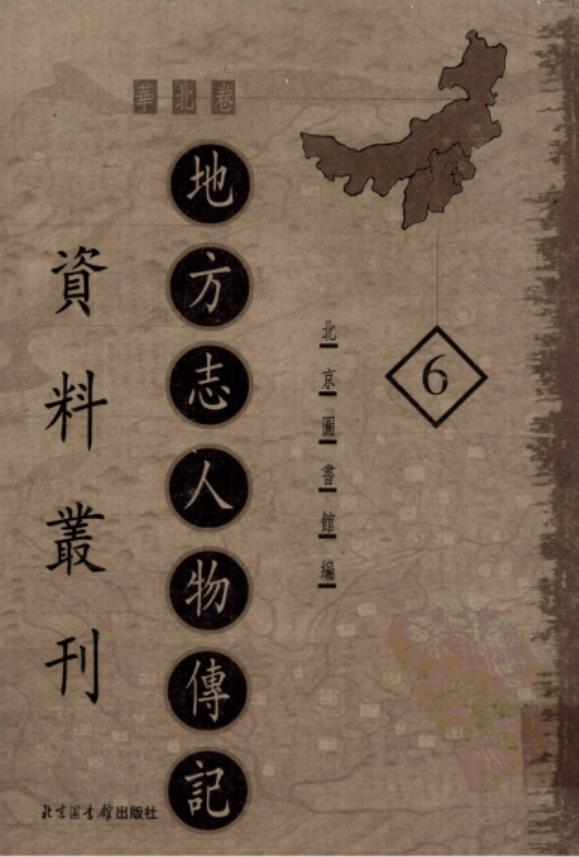 華北卷
地方志人物傳記
資料叢刊
北京圖書館編
6
北京图书馆出版社